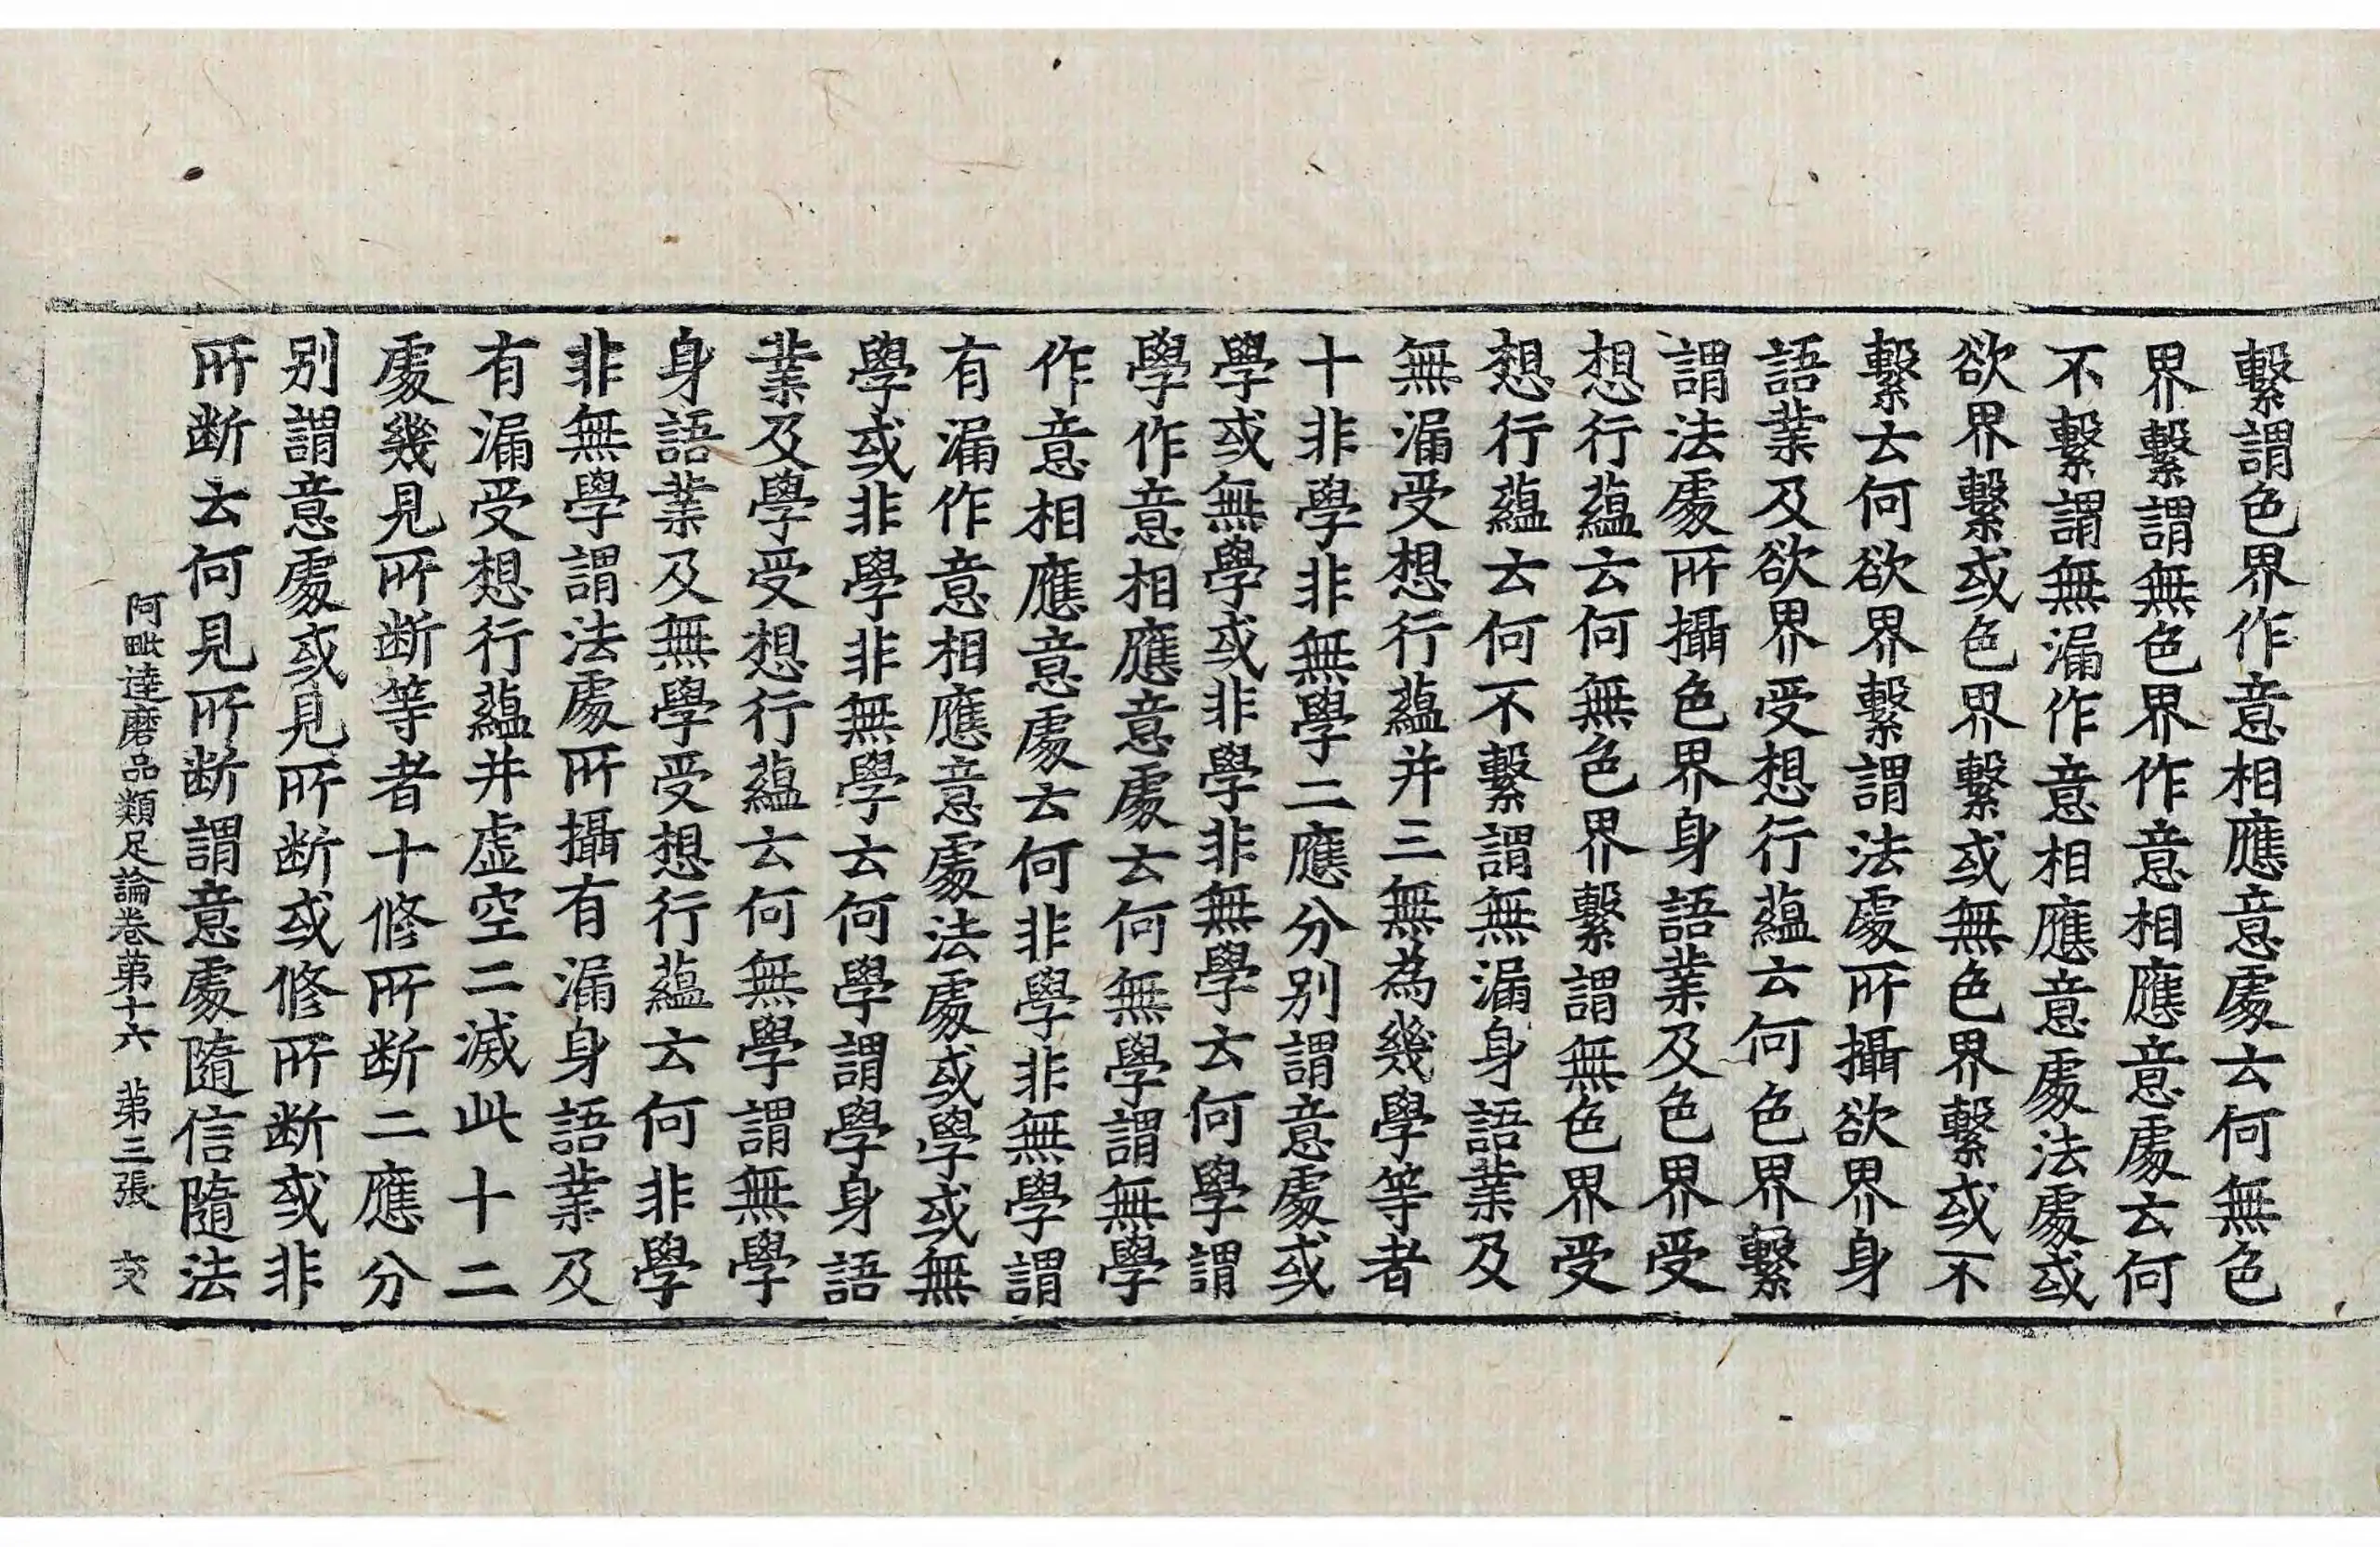 繫謂色界作意相應意處云何無色
界繫謂無色界作意相應意處云何
不繫謂無漏作意相應意處法處或
欲界繫或色界繫或無色界繫或不
繫云何欲界繫謂法處所攝欲界身
語業及欲界受想行蘊云何色界繫
謂法處所攝色界身語業及色界受
想行蘊云何無色界繫謂無色界受
想行蘊云何不繫謂無漏身語業及
無漏受想行蘊并三無為幾學等者
十非學非無學二應分別謂意處或
學或無學或非學非無學云何學謂
學作意相應意處云何無學謂無學
作意相應意處云何非學非無學謂
有漏作意相應意處法處或學或無
學或非學非無學云何學謂學身語
業及學受想行蘊云何無學謂無學
身語業及無學受想行蘊云何非學
非無學謂法處所攝有漏身語業及
有漏受想行蘊并虛空二滅此十二
處幾見所斷等者十修所斷二應分
別謂意處或見所斷或修所斷或非
所斷云何見所斷謂意處隨信隨法
阿毗達磨品類足論卷第十六 第三張 交